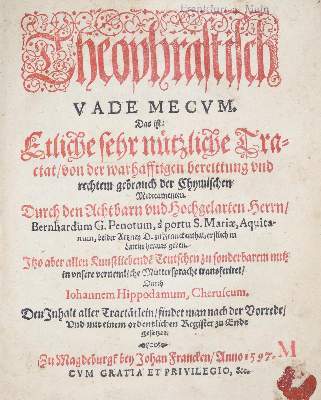 Frankfurt a. Main
Theophrastisch
VADE MECVM.
Das ist:
Etliche sehr nützliche Tra-
ctat/ von der warhafftigen bereittung vnd
rechtem gebrauch der Chymischen
Medicamenten.
Durch den Achtbarn vnd Hochgelarten Herrn/
Bernhardum G. Penotum, à portu S. Mariæ, Aquita-
num, beider Artzney D. zu Franckenthal, erstlich in
Latin heraus geben.
Itzo aber allen Kunstliebendē Teutschen zu sonderbarem nutz
in vnsere vernemliche Muttersprache transferiret/
Durch
Iohannem Hippodamum, Cheruscum.
Den Inhalt aller Tractätlein/ findet man nach der Vorrede/
Vnd mit einem ordentlichen Register zu Ende
gesetzet.
Zu Magdeburgk bey Johan Francken/ Anno 1597.
M
CVM GRATIA ET PRIVILEGIO, &c.